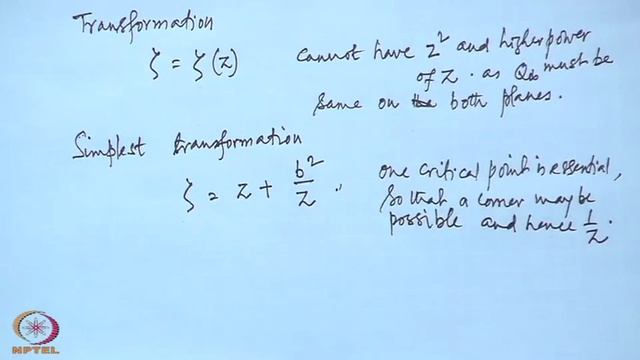 Transformation
ζ = ζ(z) cannot have z² and higher power
of z. as Q∞ must be
same on both planes.
Simplest transformation
ζ = z + b²/z, one critical point is essential,
so that a corner may be
possible and hence 1/z.
NPTEL